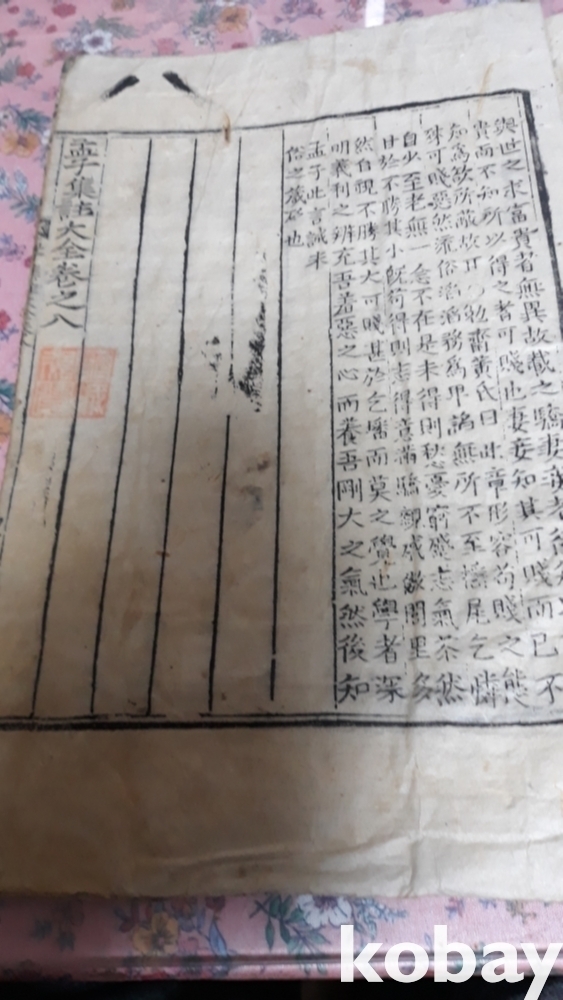 與世之求富貴者無異故載之驕妻妾者
貴而不知所以得之者可賤也妻妾知其可賤而已不
知為欲所蔽故耳○勉齋黃氏曰此章形容苟賤之態
殊可賤惡然流俗滔滔務為卑謟無所不至搖尾乞憐
自少至老無一念不在是未得則愁憂窮蹙志氣苶然
自視不勝其小旣苟得則志得意滿驕親戚傲閭里侈
然自視不勝其大可賤甚於乞墦而莫之覺也學者深
明義利之辨充吾羞惡之心而養吾剛大之氣然後知
孟子此言誠末
俗之箴砭也
孟子集註大全卷之八
kobay